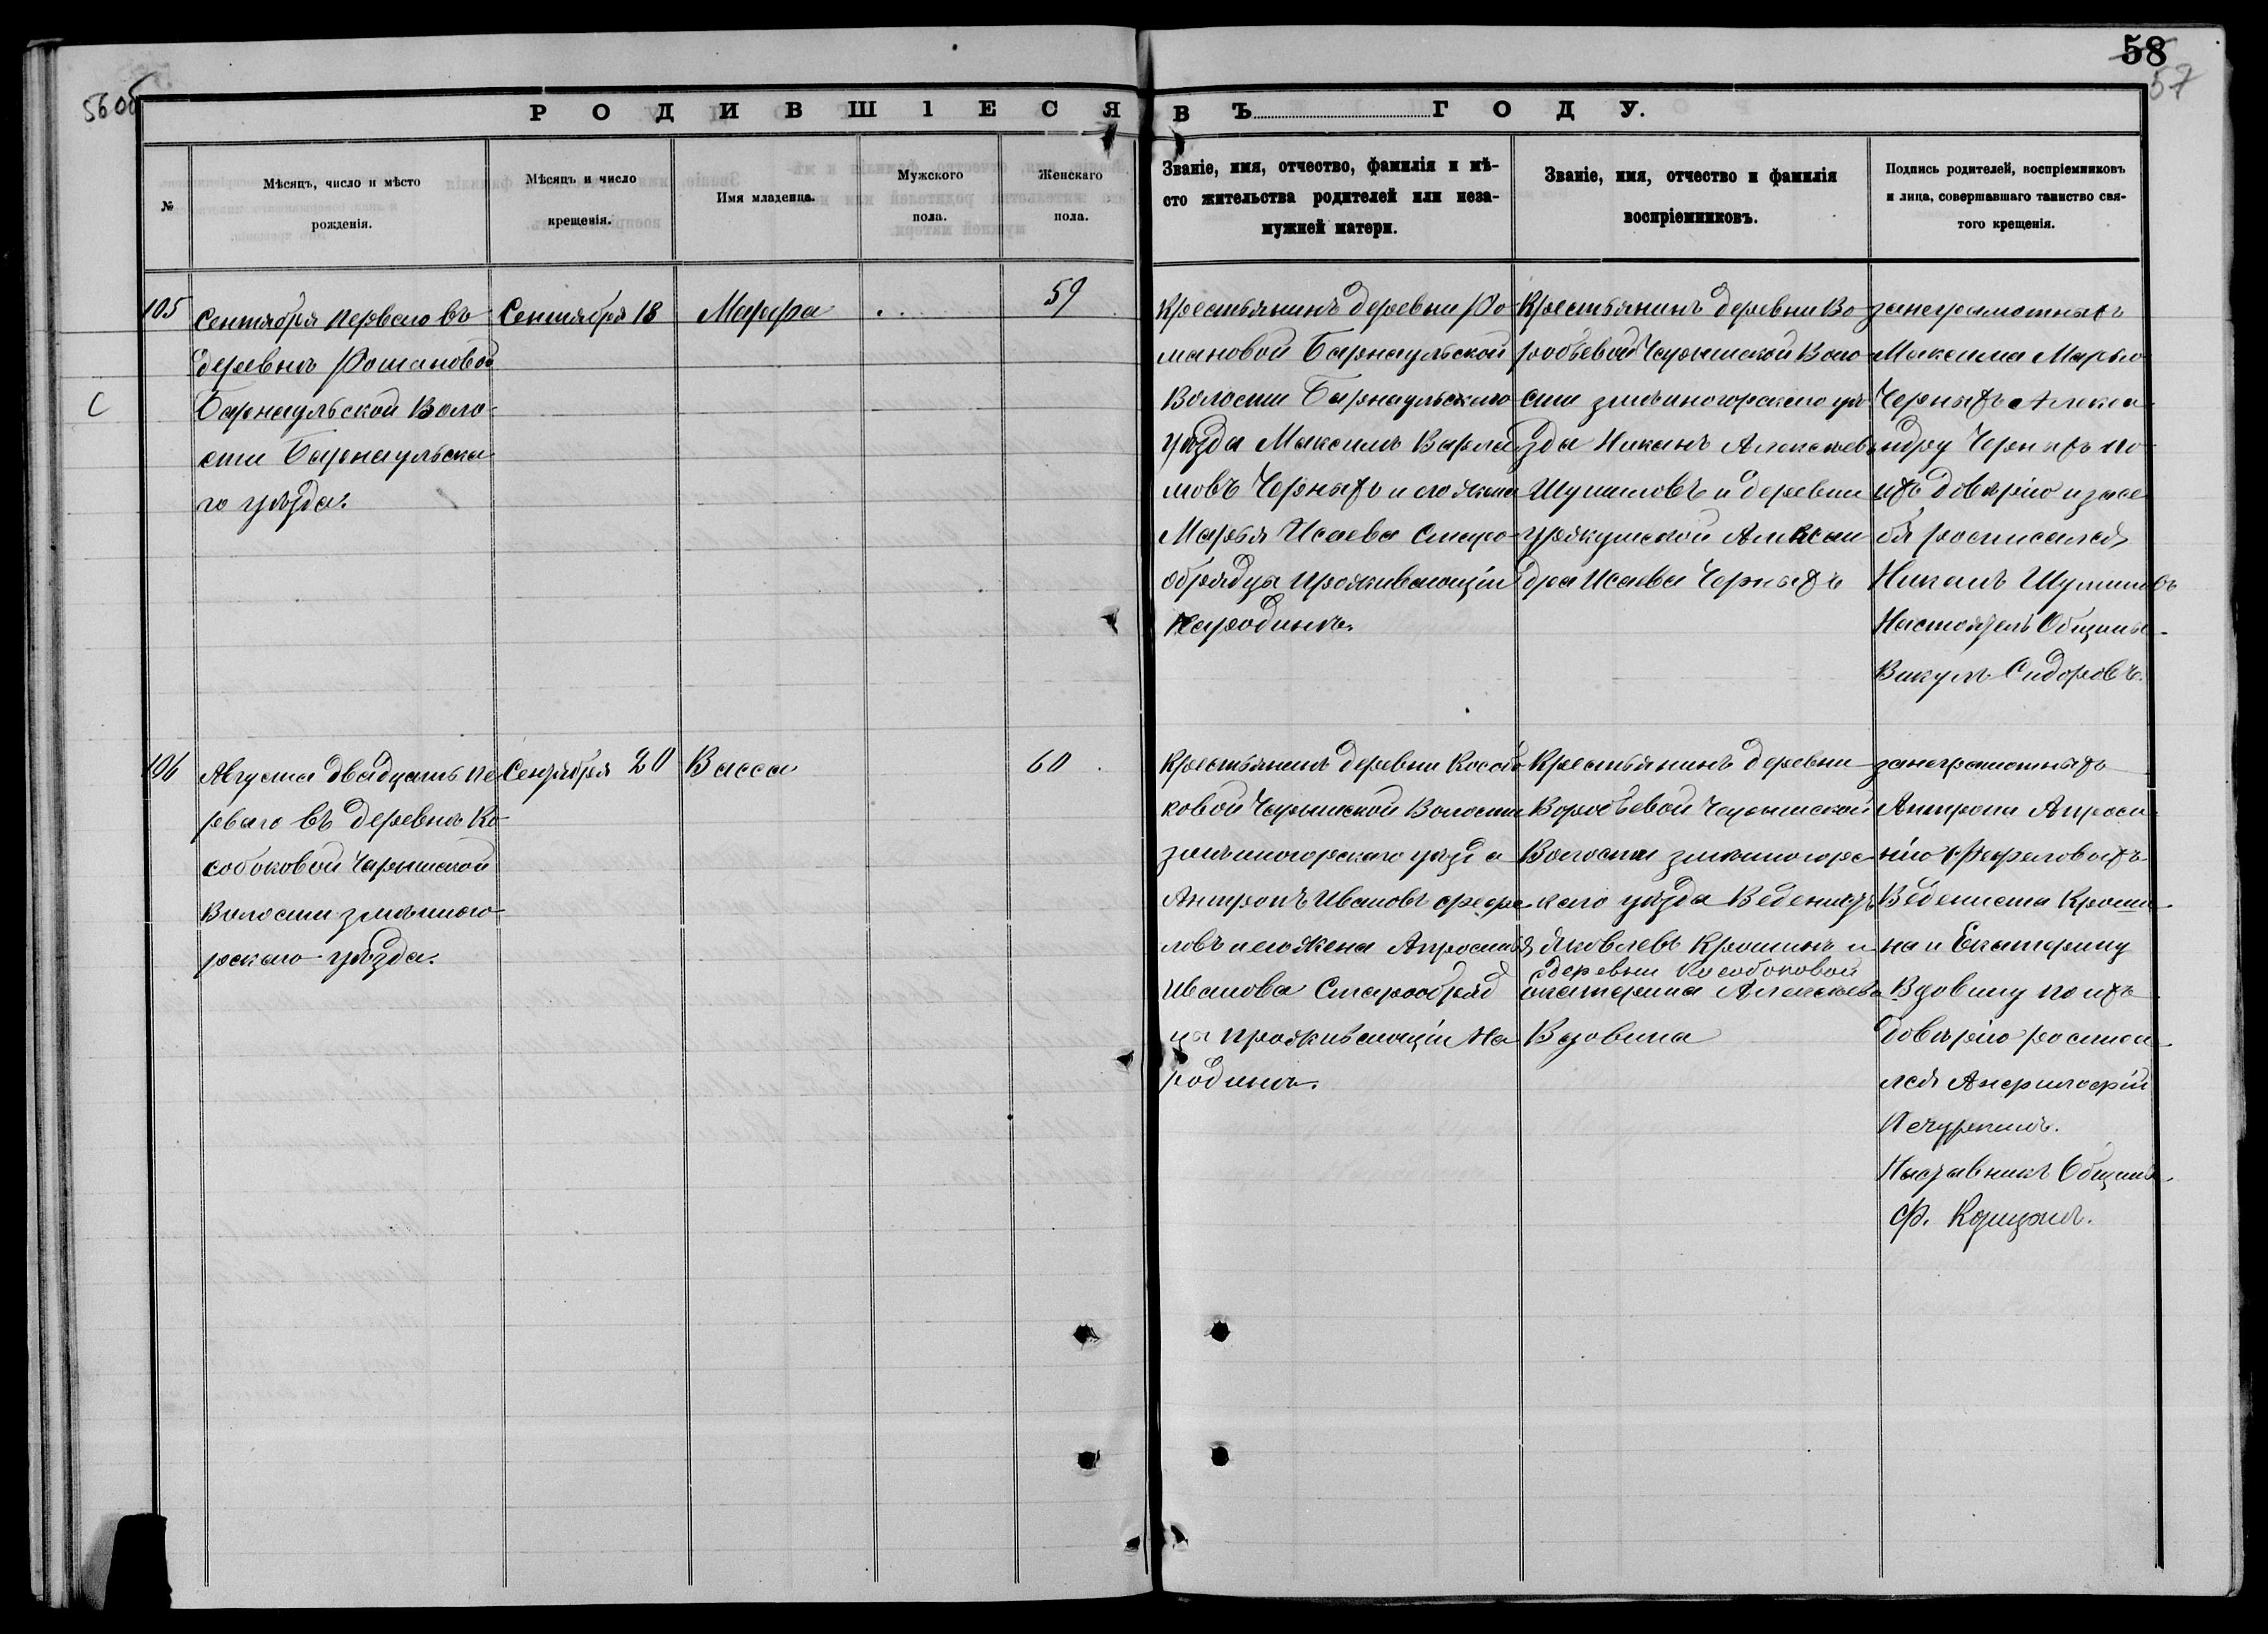 58
57
56 об
РОДИВШІЕСЯ ВЪ ГОДУ.
№
Мѣсяцъ, число и мѣсто
рожденія.
Мѣсяцъ и число
крещенія.
Имя младенца.
Мужского
пола.
Женскаго
пола.
Званіе, имя, отчество, фамилія и мѣ-
сто жительства родителей или неза-
мужней матери.
Званіе, имя, отчество и фамилія
воспріемниковъ.
Подпись родителей, воспріемниковъ
и лица, совершавшаго таинство свя-
того крещенія.
С
105
Сентября перваго въ
деревнѣ Романовой
Барнаульской Воло-
сти Барнаульска
го уѣзда.
Сентября 18
Марфа
59
Крестьянинъ деревни Ро
мановой Барнаульской
Волости Барнаульскаго
уѣзда Максимъ Варла
мовъ Черныхъ и его жена
Марья Исаева Старо-
обрядцы проживающіи
Народинѣ.
Крестьянинъ деревни Во
робьевой Чарышской Воло
сти змѣиногорскаго уѣ
зда Никанъ Алексѣевъ
Шумиловъ и деревни
Александра Исаева Черныхъ
занеграмотныхъ
Максима Марью
Черныхъ Алекса
ндру Черныхъ по
ихъ довѣрію и засе
бя росписался
Никанъ Шумиловъ
Настоятель Общины
Викулъ Сидоровъ.
106
Августа двадцать пе
рваго въ деревнѣ Ко
собоковой Чарышской
Волости змѣиного
рскаго уѣзда.
Сентября 20
Васса
60
Крестьянинъ деревни Кособо
ковой Чарышской Волости
змѣиногорскаго уѣзда
Антропъ Ивановъ Фефе
ловъ и его жена Апросинья
Иванова Старообряд
цы проживающіи На
родинѣ.
Крестьянинъ деревни
Воробьевой Чарышской
Волости змѣиногорс
каго уѣзда Веденистъ
Яковлевъ Крошинъ и
деревни Кособоковой
Екатерина Алексѣева
Вдовина
занеграмотныхъ
Антропа Апроси
нію Фефеловыхъ
Ведениста Кроши
на и Екатерину
Вдовину по ихъ
довѣрію росписа
лся Анфилофій
Печуркинъ.
Наставникъ Общины
Ф.